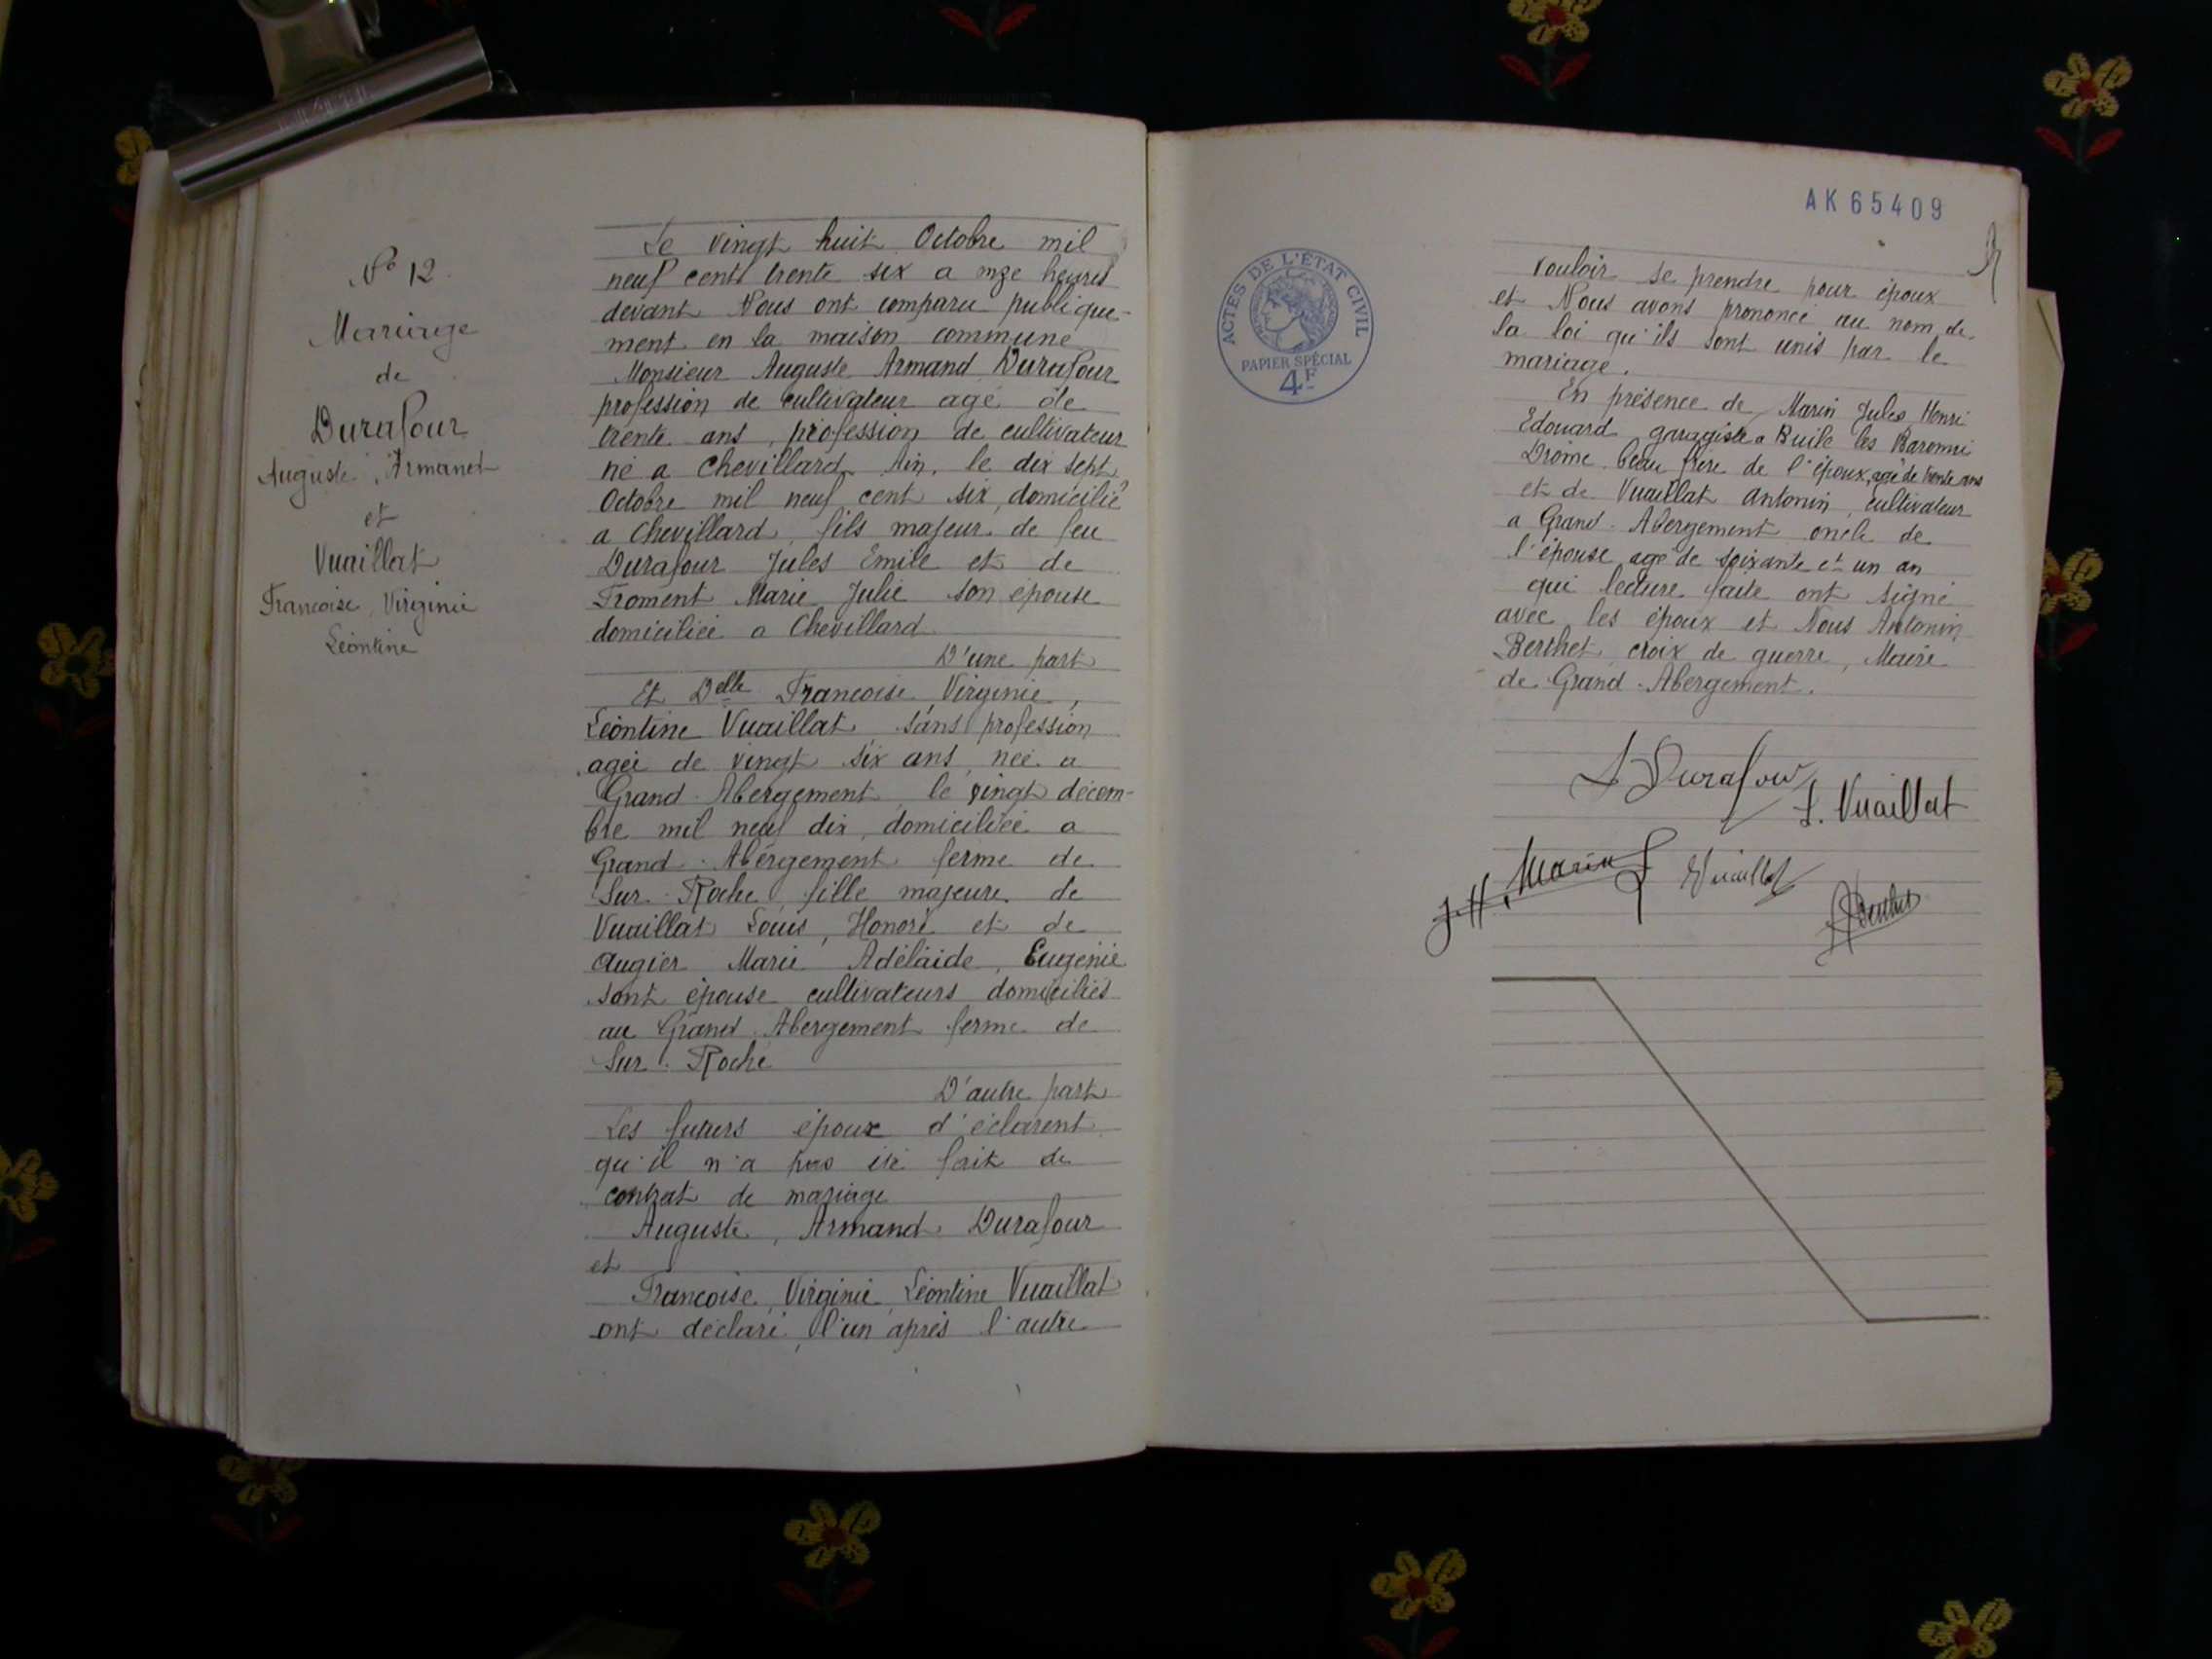 N° 12
Mariage
de
Durafour
Auguste, Armand
et
Vuaillat
Francoise, Virginie
Léontine
Le vingt huit Octobre mil
neuf cent trente six a onze heures
devant Nous ont comparu publique-
ment en la maison commune
Monsieur Auguste Armand Durafour
profession de cultivateur agé de
trente ans, profession de cultivateur
né a Chevillard Ain, le dix sept
Octobre mil neuf cent six, domicilié
a Chevillard, fils majeur de feu
Durafour Jules Emile et de
Froment Marie Julie son épouse
domiciliée a Chevillard
D'une part
Et Delle Francoise Virginie,
Léontine Vuaillat sans profession
agée de vingt six ans, née a
Grand-Abergement, le vingt décem-
bre mil neuf dix, domiciliée a
Grand-Abergement ferme de
Sur-Roche, fille majeure de
Vuaillat Louis, Honoré et de
Augier Marie Adélaide, Eugénie
sont épouse cultivateurs domiciliés
au Grand Abergement ferme de
Sur-Roche
D'autre part
Les futurs époux d'éclarent
qu'il n'a pas été fait de
contrat de mariage
Auguste, Armand Durafour
et
Francoise, Virginie, Léontine Vuaillat
ont déclaré, l'un après l'autre
AK 65409
ACTES DE L'ÉTAT CIVIL
PAPIER SPÉCIAL
4F
vouloir se prendre pour époux
et Nous avons prononcé au nom de
la loi qu'ils sont unis par le
mariage.
En présence de Marin Jules Henri
Edouard garagiste a Buile les Baronni
Drôme beau frère de l'époux, agé de trente ans
et de Vuaillat Antonin, cultivateur
a Grand-Abergement oncle de
l'épouse agé de soixante et un an
qui lecture faite ont signé
avec les époux et Nous Antonin
Berthet croix de guerre, Maire
de Grand-Abergement.
A Durafour
F. Vuaillat
J.H. Marin
Vuaillat
A Berthet